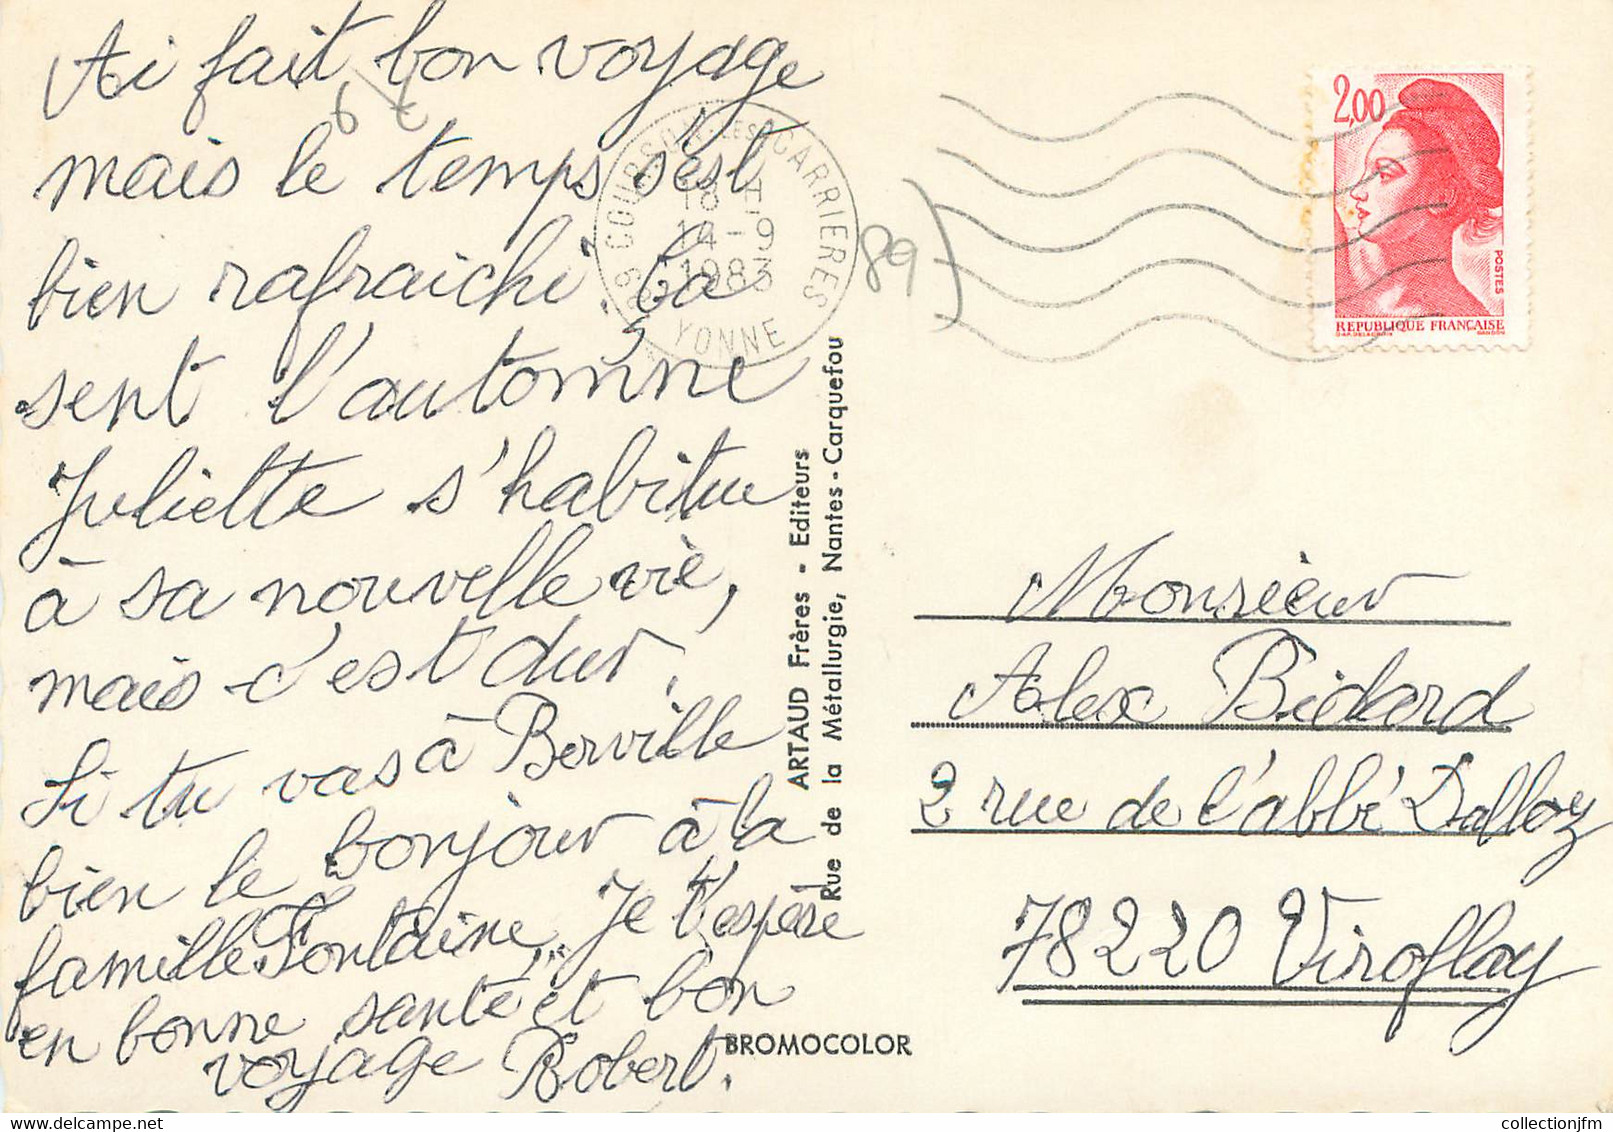 Ai fait bon voyage
mais le temps s'est
bien rafraichi. ça
sent l'automne
Juliette s'habitue
à sa nouvelle vie,
mais c'est dur.
Si tu vas à Berville
bien le bonjour à la
famille Fontaine... Je t'espère
en bonne santé et bon
voyage Robert.
89 COURSON-LES-CARRIERES
18 H
14-9
1983
YONNE
89)
2,00
POSTES
REPUBLIQUE FRANÇAISE
D'AP. DELACROIX GANDON
ARTAUD Frères - Editeurs
Rue de la Métallurgie, Nantes-Carquefou
Monsieur
Alex Bidard
2 rue de l'abbé Dalloz
78220 Viroflay
BROMOCOLOR
collectionjfm